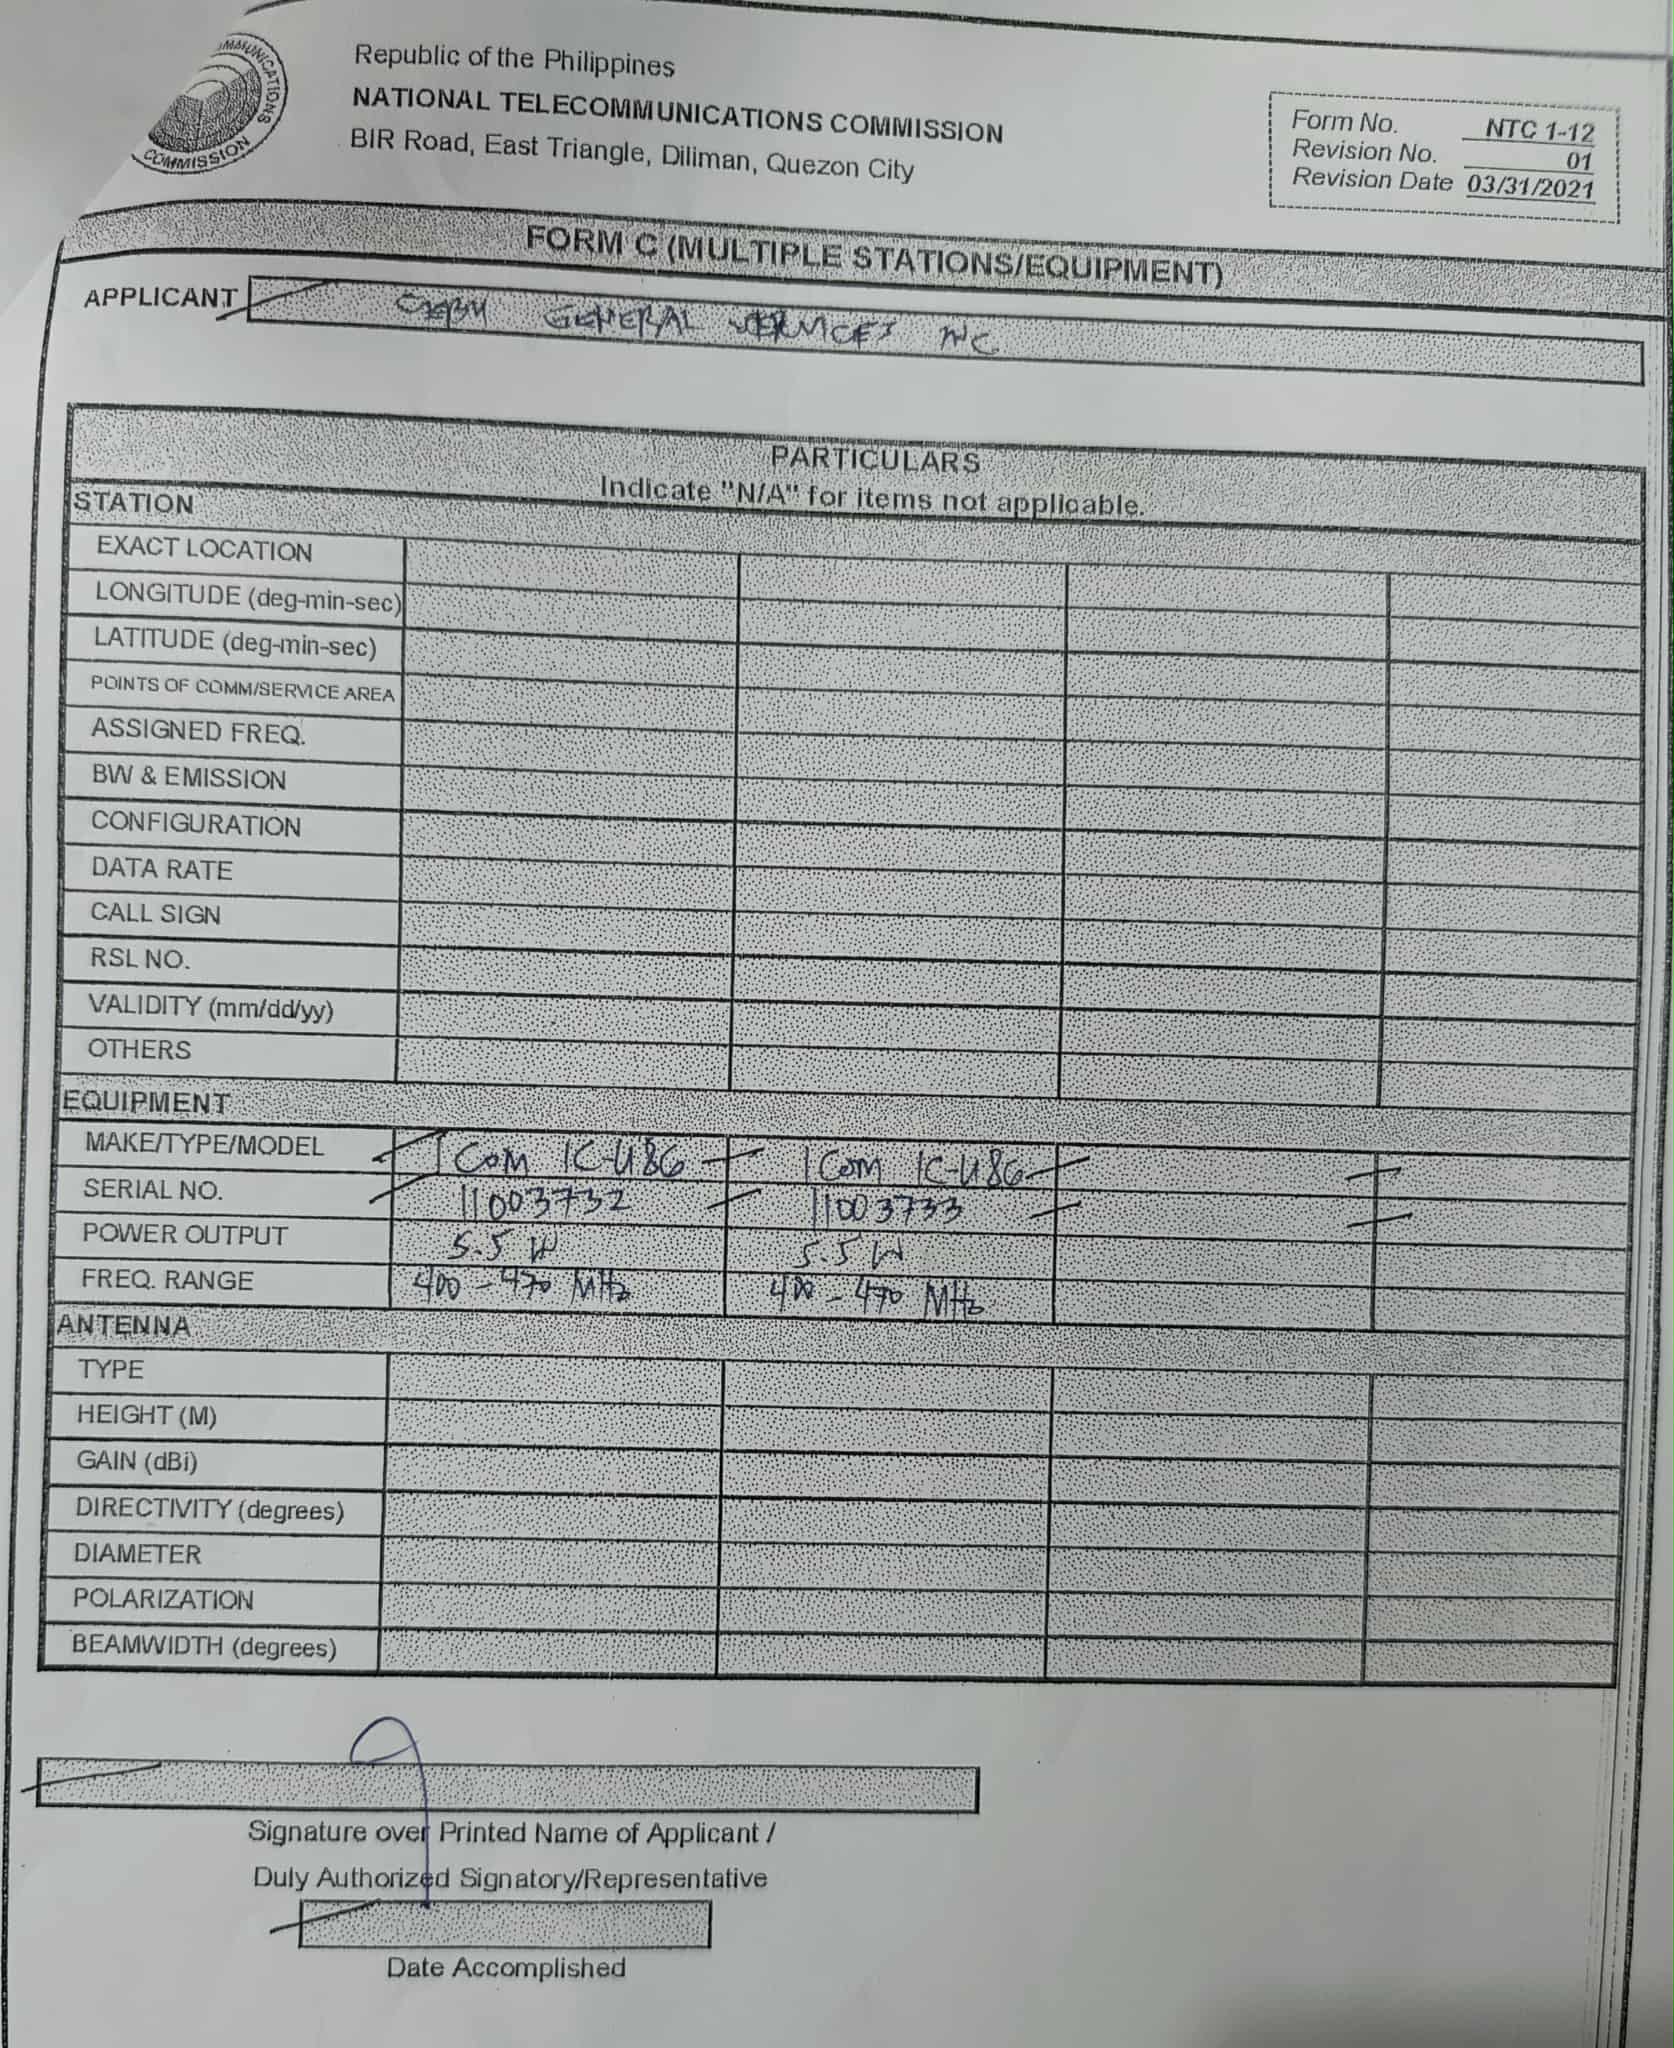 MMUNICATIONS
COMMISSION
Republic of the Philippines
NATIONAL TELECOMMUNICATIONS COMMISSION
BIR Road, East Triangle, Diliman, Quezon City
Form No. NTC 1-12
Revision No. 01
Revision Date 03/31/2021
FORM C (MULTIPLE STATIONS/EQUIPMENT)
APPLICANT GENERAL SERVICES INC
PARTICULARS
Indicate "N/A" for items not applicable.
STATION
EXACT LOCATION
LONGITUDE (deg-min-sec)
LATITUDE (deg-min-sec)
POINTS OF COMM/SERVICE AREA
ASSIGNED FREQ.
BW & EMISSION
CONFIGURATION
DATA RATE
CALL SIGN
RSL NO.
VALIDITY (mm/dd/yy)
OTHERS
EQUIPMENT
MAKE/TYPE/MODEL ICOM IC-U86 ICOM IC-U86
SERIAL NO. 11003732 11003733
POWER OUTPUT 5.5 W 5.5 W
FREQ. RANGE 400 - 470 MHz 400 - 470 MHz
ANTENNA
TYPE
HEIGHT (M)
GAIN (dBi)
DIRECTIVITY (degrees)
DIAMETER
POLARIZATION
BEAMWIDTH (degrees)
Signature over Printed Name of Applicant /
Duly Authorized Signatory/Representative
Date Accomplished